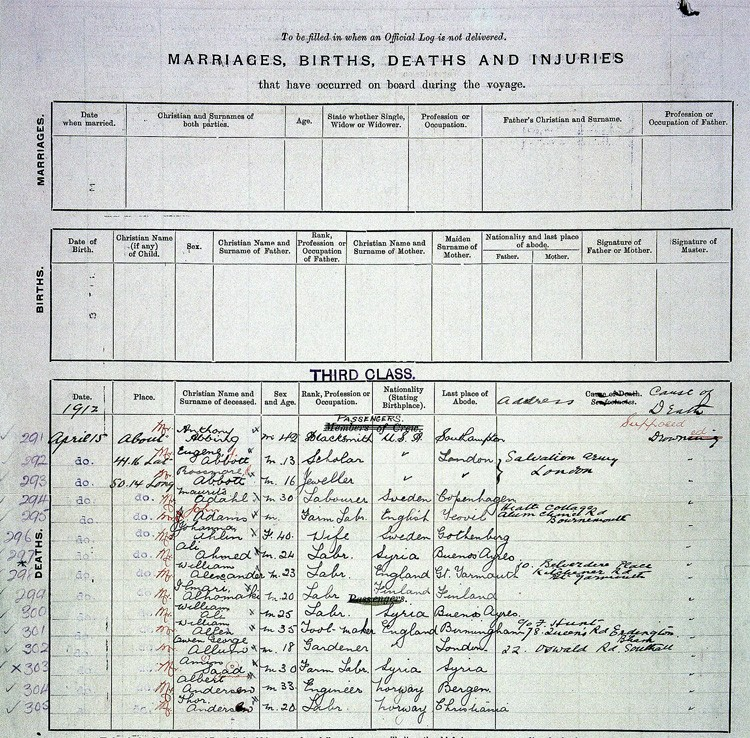 To be filled in when an Official Log is not delivered.
MARRIAGES, BIRTHS, DEATHS AND INJURIES
that have occurred on board during the voyage.
MARRIAGES.
Date when married. Christian and Surnames of both parties. Age. State whether Single, Widow or Widower. Profession or Occupation. Father's Christian and Surname. Profession or Occupation of Father.
BIRTHS.
Date of Birth. Christian Name (if any) of Child. Sex. Christian Name and Surname of Father. Rank, Profession or Occupation of Father. Christian Name and Surname of Mother. Maiden Surname of Mother. Nationality and last place of abode. Father. Mother. Signature of Father or Mother. Signature of Master.
THIRD CLASS.
DEATHS.
Date. 1912 Place. Christian Name and Surname of deceased. Sex and Age. Rank, Profession or Occupation. Nationality (Stating Birthplace). Last place of Abode. Address Cause of Death. Cause of Death
PASSENGERS.
Members of Crew.
Supposed
291 April 15 About Mr Anthony Abbing m 42 Blacksmith U.S.A. Southampton Drowning
292 do. 41.16 Lat Eugene J. Abbott m. 13 Scholar " London Salvation Army London "
293 do. 50.14 Long Rossmore Abbott m. 16 Jeweller " " "
294 do. do. Mauritz Adahl m 30 Labourer Sweden Copenhagen "
295 do. do. Adams m. Farm Labr. English Yeovil Bournemouth "
296 do. do. Johanna Ahlin F. 40. Wife Sweden Gothenburg "
297 do. do. Ali Ahmed m. 24 Labr. Syria Buenos Ayres "
298 do. do. William Alexander m. 23 Labr. England Gt. Yarmouth 10. Belvedere Place Kitchener Rd Gt Yarmouth "
299 do. do. Ilmari Alhomaki m. 20 Labr Finland Finland "
Passengers.
300 do. do. William Ali m 25 Labr. Syria Buenos Ayres. "
301 do. do. William Allen m 35 Tool-maker England Birmingham c/o F. Hunt 78 Queens Rd Erdington "
302 do. do. Owen George Allum m. 18 Gardener " London. 22. Oswald Rd. Southall "
303 do. do. Saad m 30 Farm Labr. Syria Syria "
304 do. do. Albert Andersen m 33. Engineer Norway Bergen. "
305 do. do. Thor. Andersen m. 20 Labr. Norway Christiania "